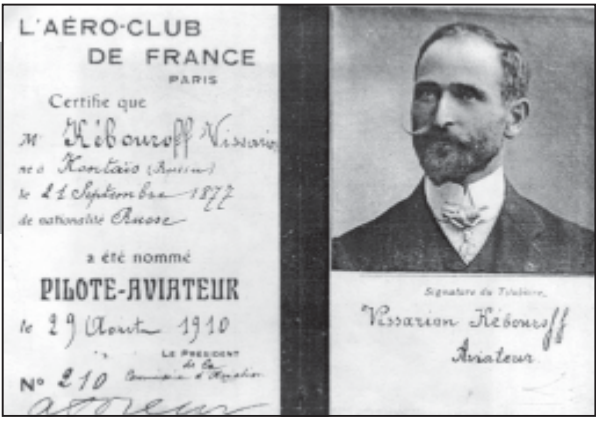 L'AÉRO-CLUB
DE FRANCE
PARIS
Certifie que
M Kébouroff Vissarion
né à Kontaïs (Russie)
le 21 Septembre 1877
de nationalité Russe
a été nommé
PILOTE-AVIATEUR
le 29 Août 1910
LE PRÉSIDENT
de la
Commission d'Aviation
Nº 210
Signature du Titulaire,
Vissarion Kébouroff
Aviateur.